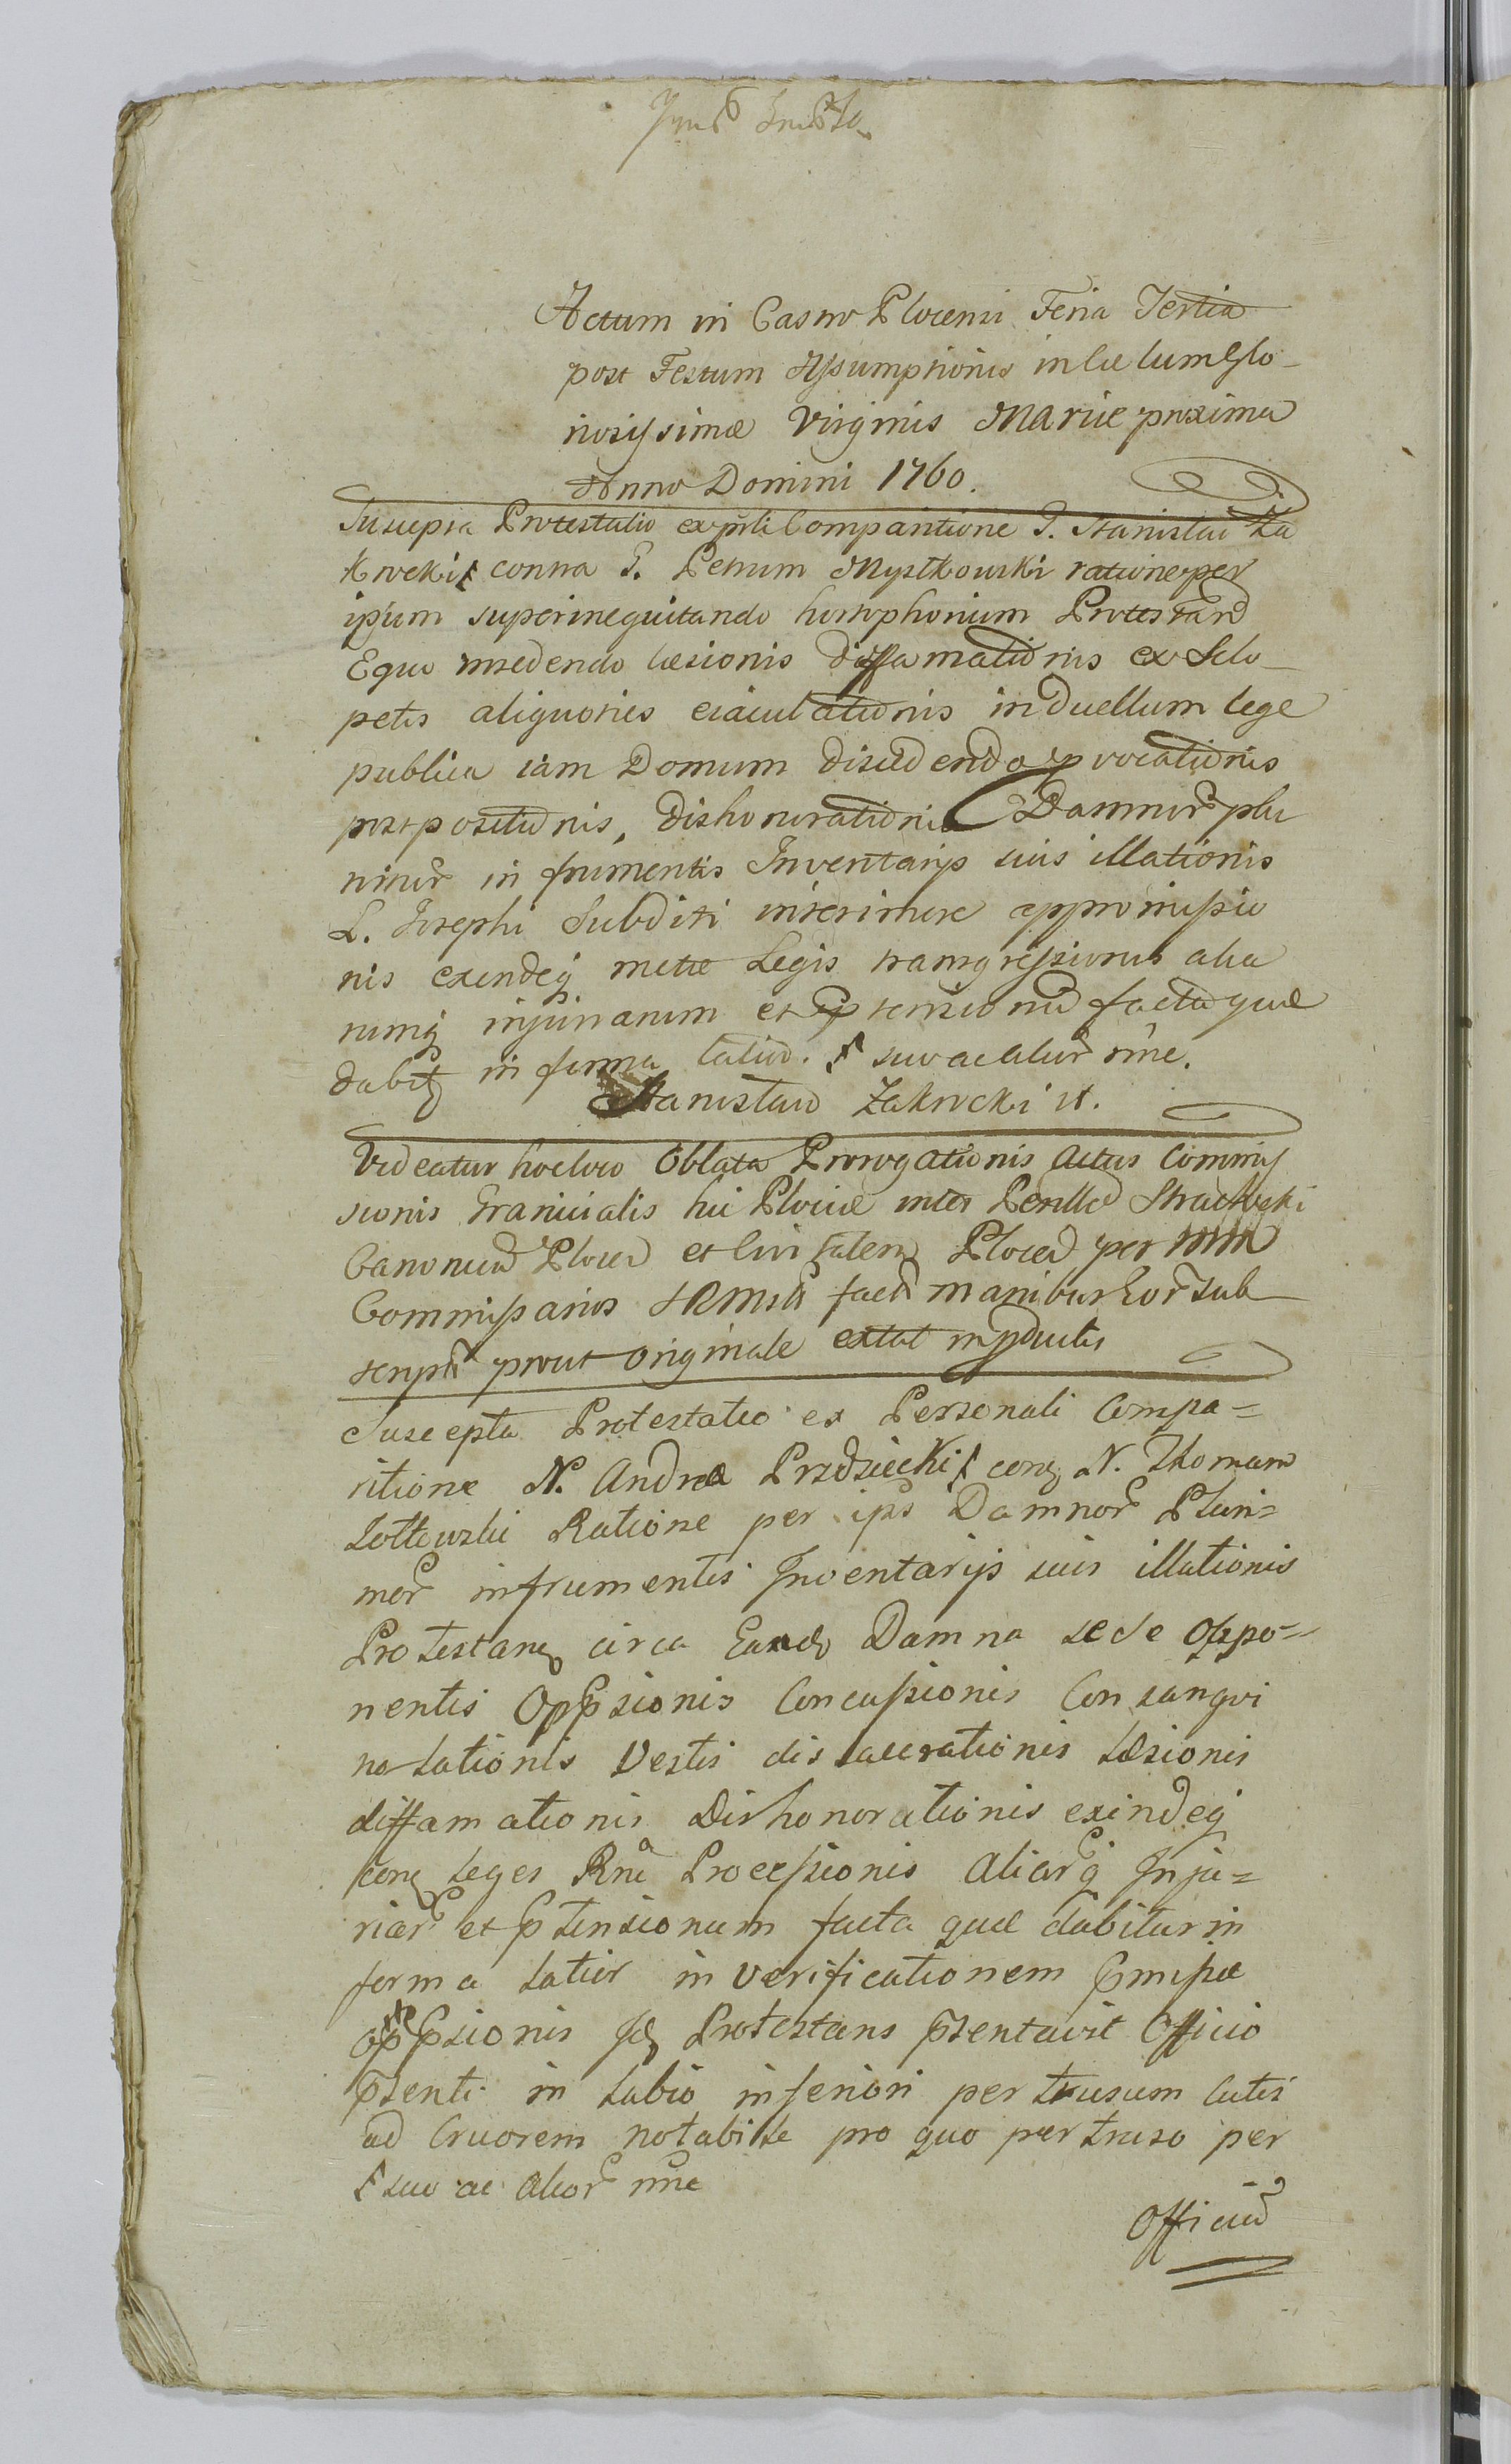 Actum in Castro Plocensi Feria Tertia
post Festum Assumptionis in Coelum Glo-
riosissimæ Virginis Mariæ proxima
Anno Domini 1760.
Suscepta Protestatio ex psnli Comparitione G. Stanislai Za
krocki contra G. Petrum Mystkowski ratione per
ipsum superinequitando hostophorium Protestand
Equo insedendo læsionis diffamationis ex Sclo-
petis aliquoties eiaculationis in Duellum lege
publica iam Domum discedendo pvocationis
postpositionis, Dishonorationis Damnor plu
rimor in frumentis Inventarijs suis illationis
L. Josephi Subditi interimere appromissio
nis exindeq metæ Legis transgressionis alia
rumq injuriarum et ptensionu facta quæ
dabitq in forma latior. suo ac alior nne.
Stanisław Zakrocki
Videatur hocloco Oblata Prorogationis Actus Commis
sionis Granicialis hic Plociæ inter Perillem
Canonicu Plocen et Civitatem Plocen per
Commissarios facti manibus Eor sub
script prout originale extat inductis
Suscepta Protestatio ex Personali Compa=
ritione N. Andreæ Przdziecki conq N. Thomam
Zottowski Ratione per ips Damnor Pluri=
mor in frumentis Inventarijs suis illationis
Protestanq circa Eandq Damna sese oppo=
nentis Oppsionis Concussionis Consangvi
nolationis Vestis dislacerationis Læsionis
diffamationis Dishonorationis exindeq
conq Leges Rni Processionis Aliarq Inju=
riar et ptensionum facta quæ dabitur in
forma latior in Verificationem pmissæ
oppsionis Jdq Protestans psentavit Officio
psenti in Labio inferiori pertrusum Cutis
ad Cruorem notabile pro quo pertruso per
suo ac Alior nne
Officiu